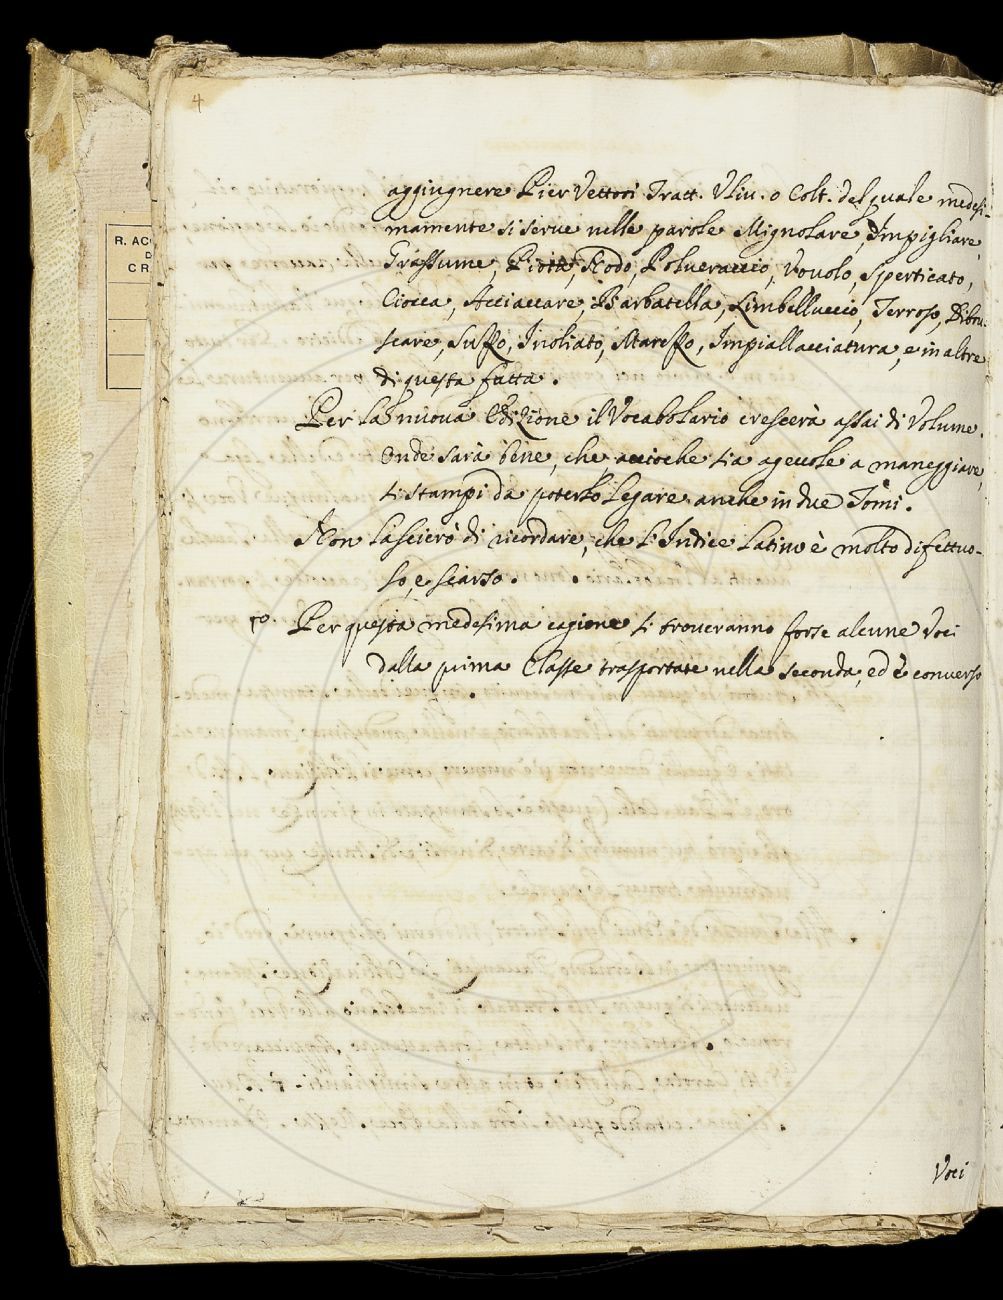 4
R. AC
D
C R
aggiugnere Pier Vettori Tratt. Vliu. o Colt. del quale medesi-
mamente si serue nelle parole Mignolare, Impigliare,
Grassume, Piota, Nodo, Polueraccio, Vouolo, Sperticato,
Ciocca, Acciaccare, Barbatella, Limbelluccio, Terroso, Dibru-
scare, Inoliato, Impiallacciatura, e in altre
di questa fatta.
Per la nuoua Edizione il Vocabolario crescerà assai di Volume.
Onde sarà bene, che, accioche sia ageuole a maneggiare,
si stampi da poterlo legare anche in due Tomi.
Non lascierò di ricordare, che l'Indice Latino è molto difettuo-
so, e scarso.
Per questa medesima cagione si troueranno forse alcune Voci
dalla prima Classe trasportate nella seconda, ed è conuerso
Voci